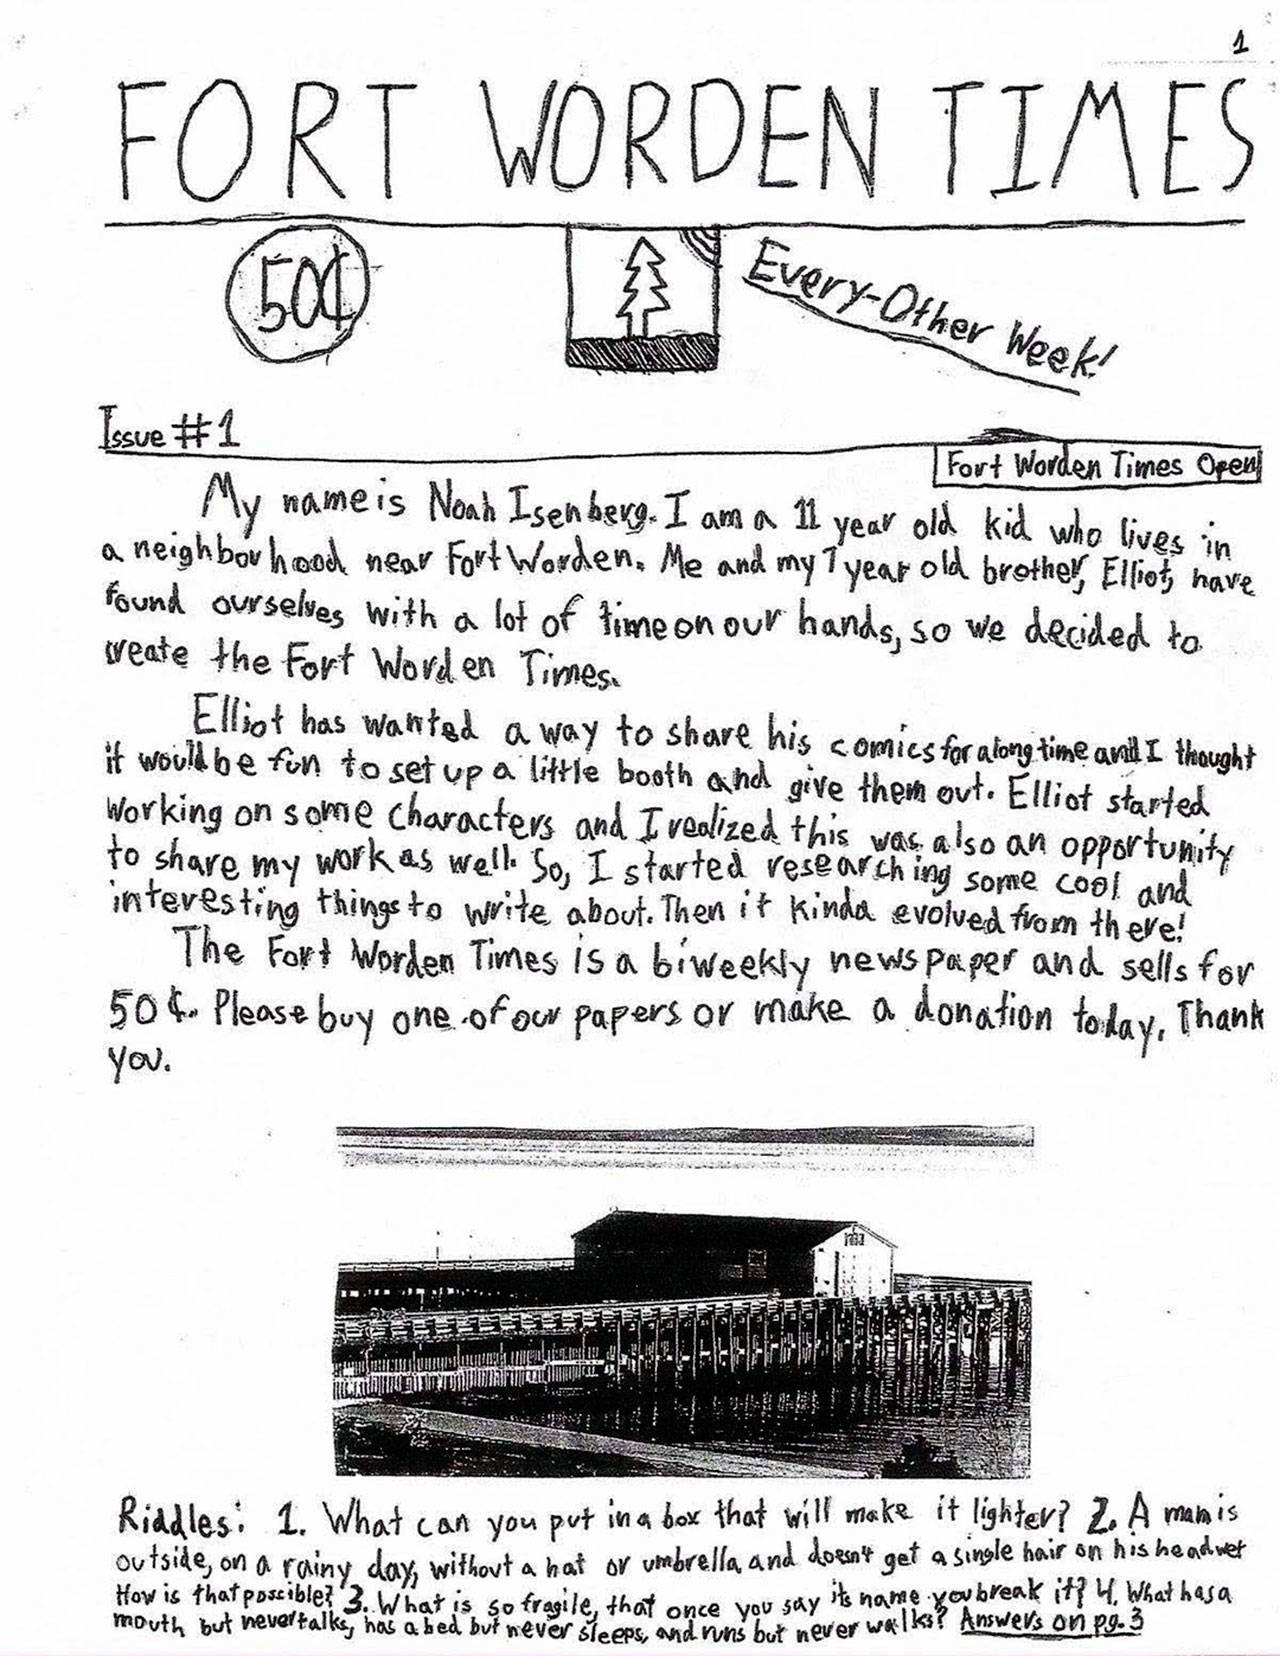 1
FORT WORDEN TIMES
50¢
Every-Other Week!
Issue #1
Fort Worden Times Open
My name is Noah Isenberg. I am a 11 year old kid who lives in
a neighborhood near Fort Worden. Me and my 7 year old brother, Elliot, have
found ourselves with a lot of time on our hands, so we decided to
create the Fort Worden Times.
Elliot has wanted a way to share his comics for a long time and I thought
it would be fun to set up a little booth and give them out. Elliot started
working on some characters and I realized this was also an opportunity
to share my work as well. So, I started researching some cool and
interesting things to write about. Then it kinda evolved from there!
The Fort Worden Times is a biweekly newspaper and sells for
50¢. Please buy one of our papers or make a donation today. Thank
you.
Riddles: 1. What can you put in a box that will make it lighter? 2. A man is
outside, on a rainy day, without a hat or umbrella and doesn't get a single hair on his head wet
How is that possible? 3. What is so fragile, that once you say its name you break it? 4. What has a
mouth but never talks, has a bed but never sleeps, and runs but never walks? Answers on pg. 3